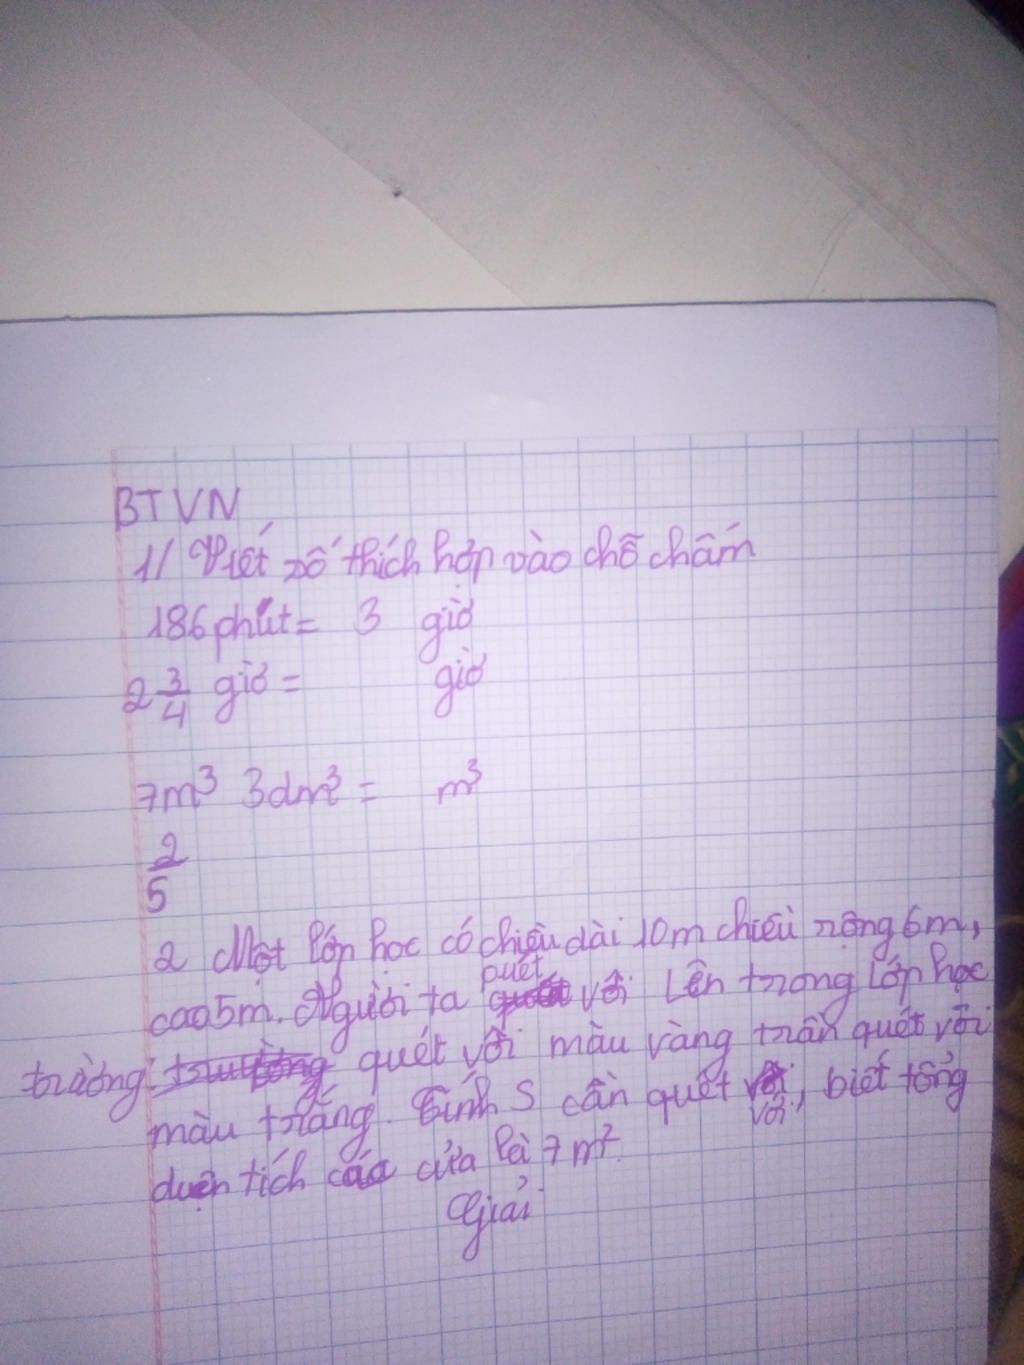 BTVN
1/ Viết số thích hợp vào chỗ chấm
186 phút = 3 giờ
2 3/4 giờ = giờ
7m³ 3dm³ = m³
2/5
2 Một lớp học có chiều dài 10m chiều rộng 6m,
cao 5m. Người ta quét vôi lên trong lớp học
tường quét vôi màu vàng trần quét vôi
màu trắng. Tính S cần quét vôi, biết tổng
diện tích các cửa là 7m².
Giải